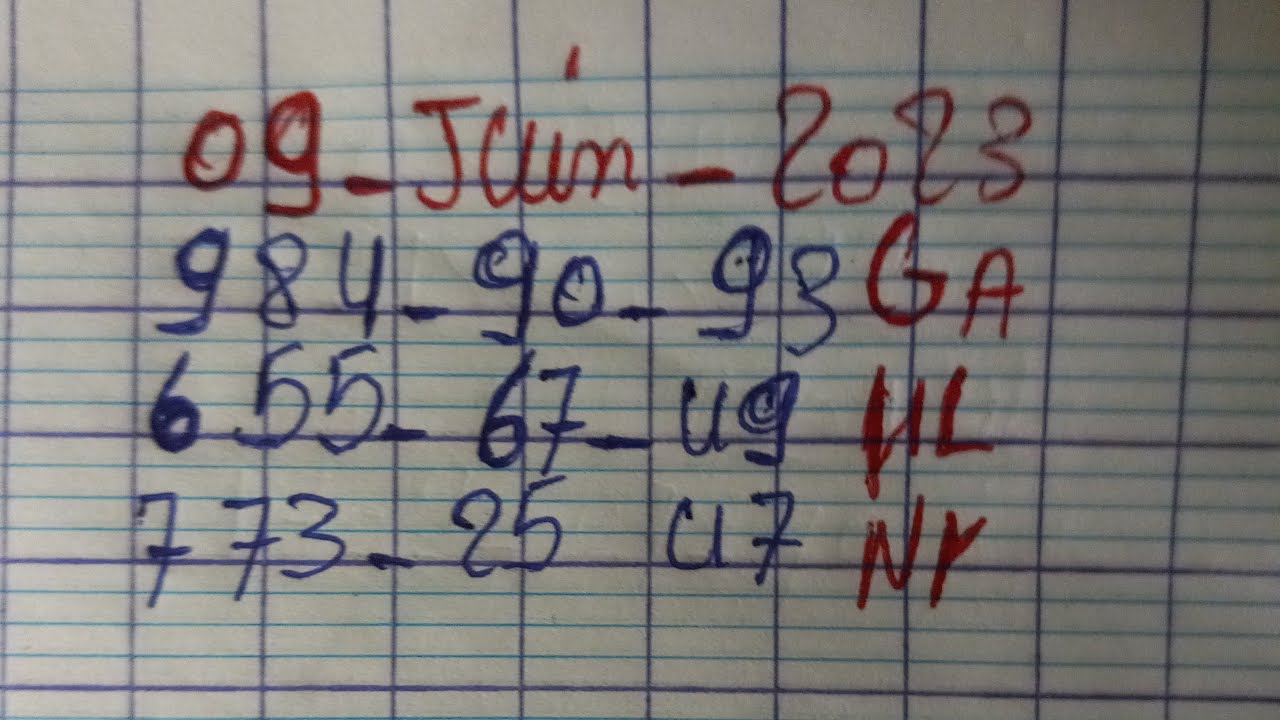 09-Juin-2023
984-90-93 GA
655-67-49 HL
773-25 47 NY